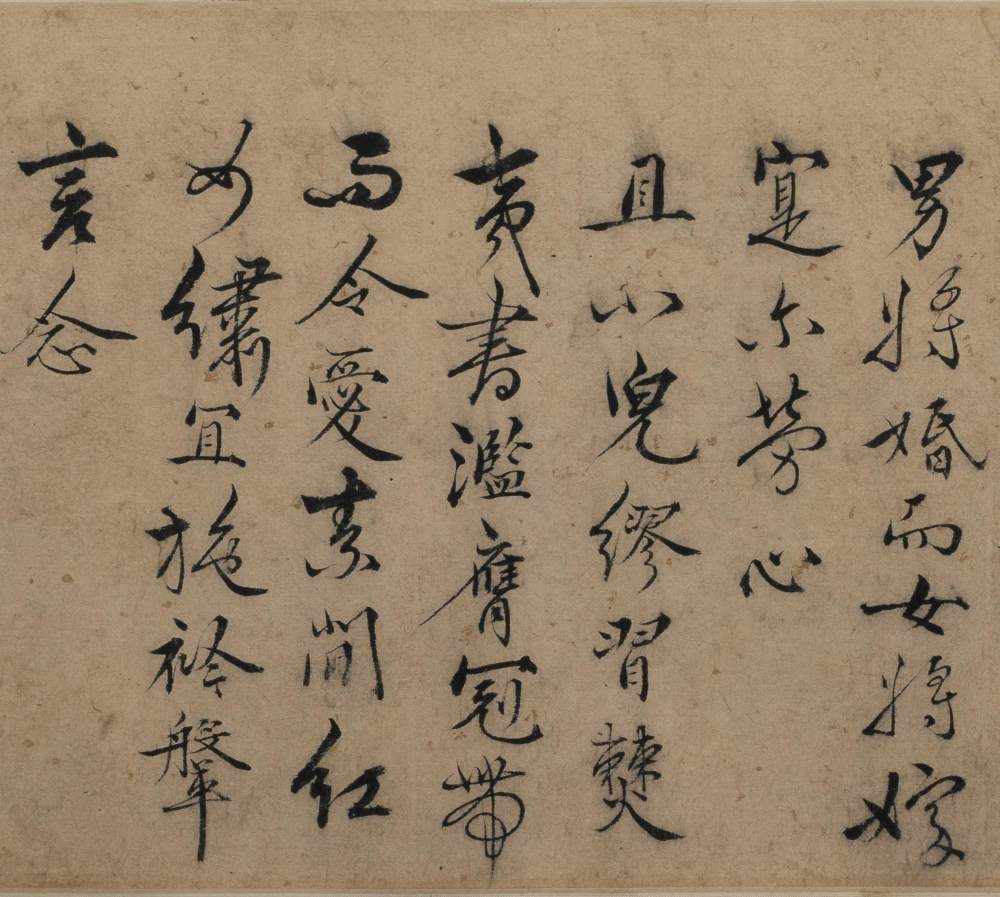 男將婚而女將嫁
寔尔勞心
且小兒繆習僰
夷書濫膺冠帶
而令愛素閒紅
女繡宜施衿鞶
言念